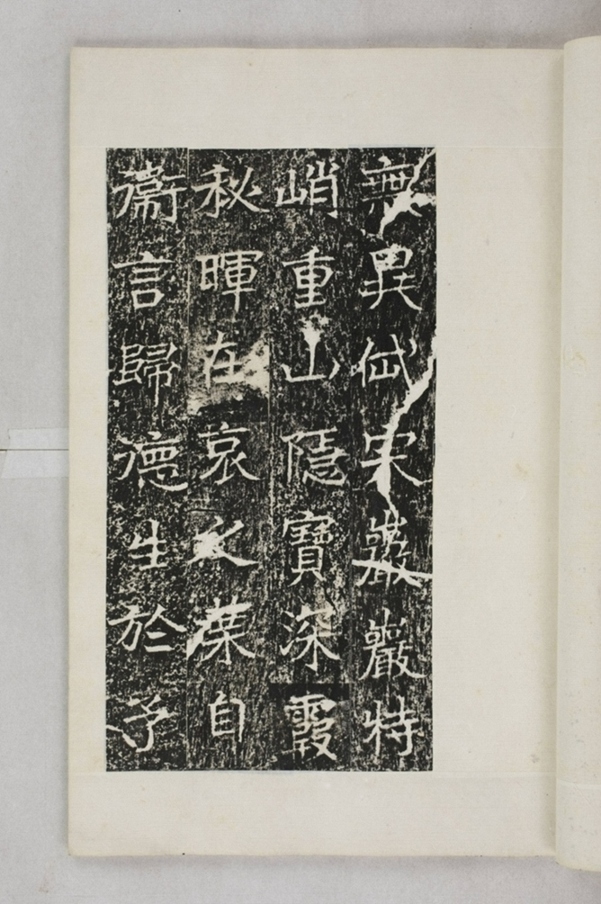 無異岱宗巖巖特
峭重山隱寶深霞
秘暉在哀之葉自
衛言歸德生於予